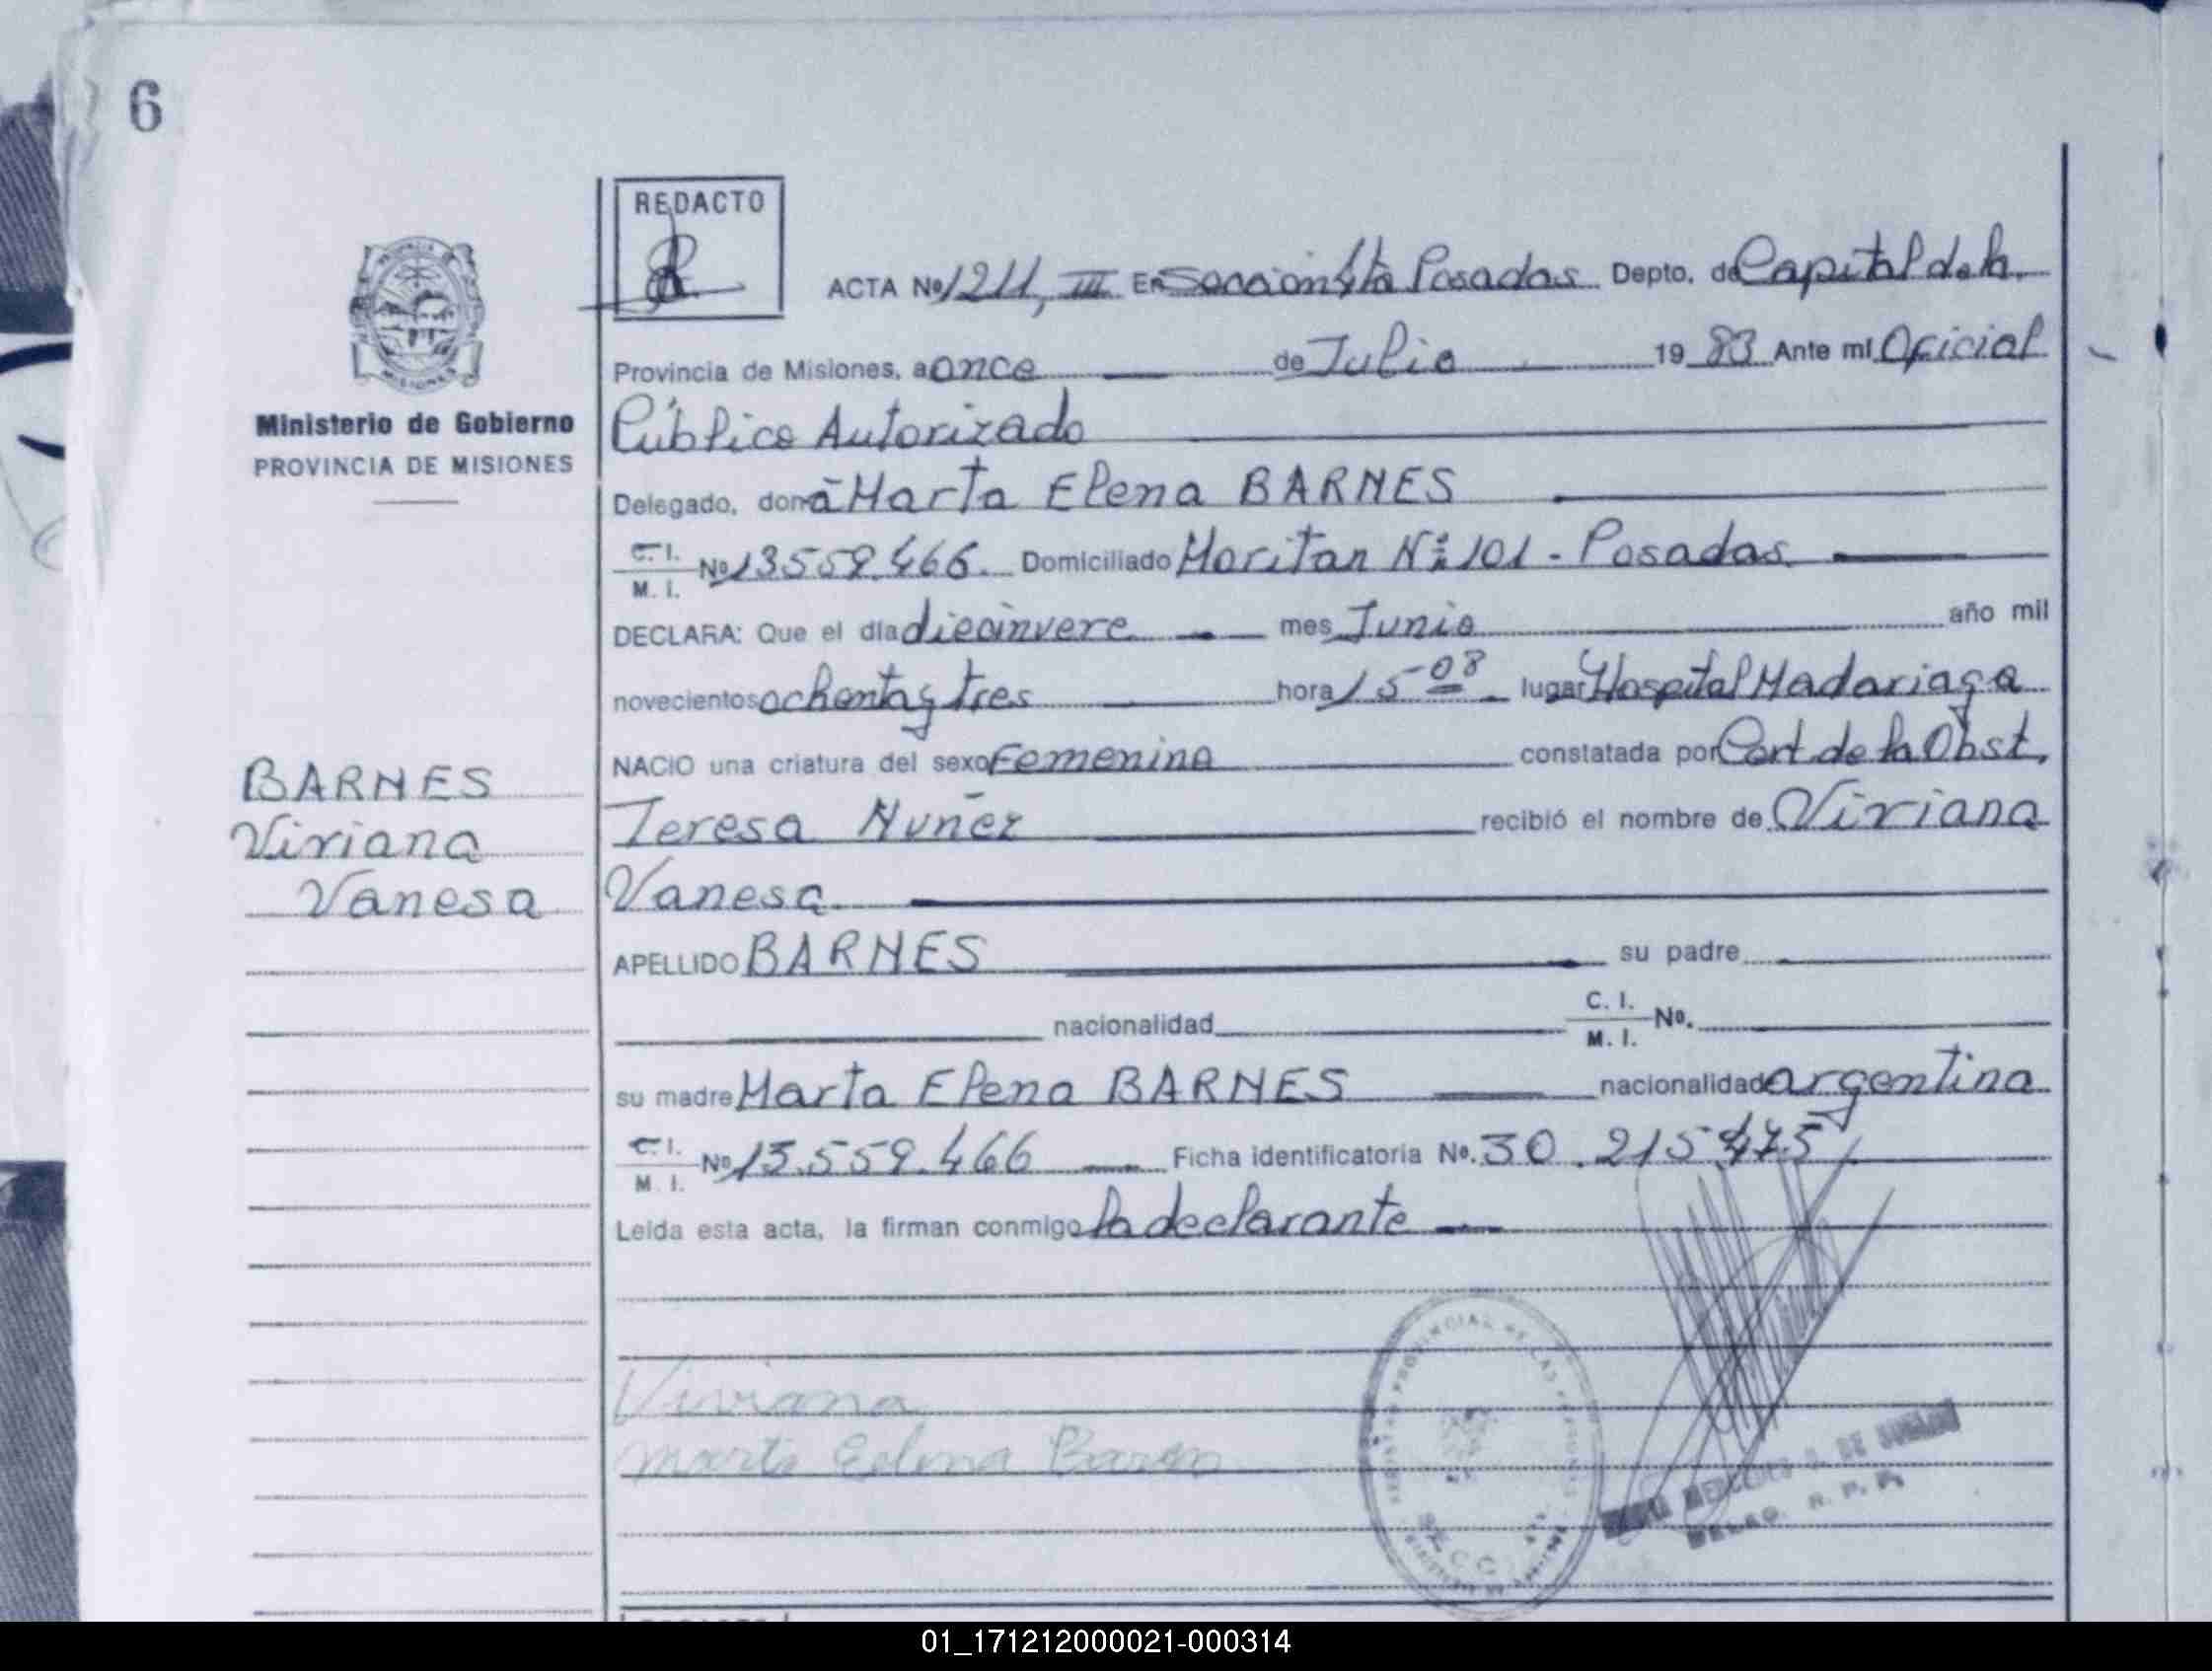 6
REDACTO
ACTA Nº 1211, III En Sección 4ta Posadas Depto. de Capital de la
Provincia de Misiones, a once de Julio 19 83 Ante mi Oficial
Público Autorizado
Ministerio de Gobierno
PROVINCIA DE MISIONES
Delegado, doña Marta Elena BARNES
C. I. M. I. Nº 13559.466. Domiciliado Moritan Nº 101 - Posadas
DECLARA: Que el día diecinvere mes Junio año mil
novecientos ochenta y tres hora 15-08 lugar Hospital Madariaga
NACIO una criatura del sexo Femenino constatada por Cert. de la Obst.
BARNES
Viviana
Vanesa
Teresa Nuñez recibió el nombre de Viviana
Vanesa
APELLIDO BARNES su padre
nacionalidad C. I. M. I. Nº.
su madre Marta Elena BARNES nacionalidad argentina
C. I. M. I. Nº 13.559.466 Ficha identificatoria Nº. 30.215475
Leída esta acta, la firman conmigo la declarante
Viviana
Marta Eelena Barnes
01_171212000021-000314